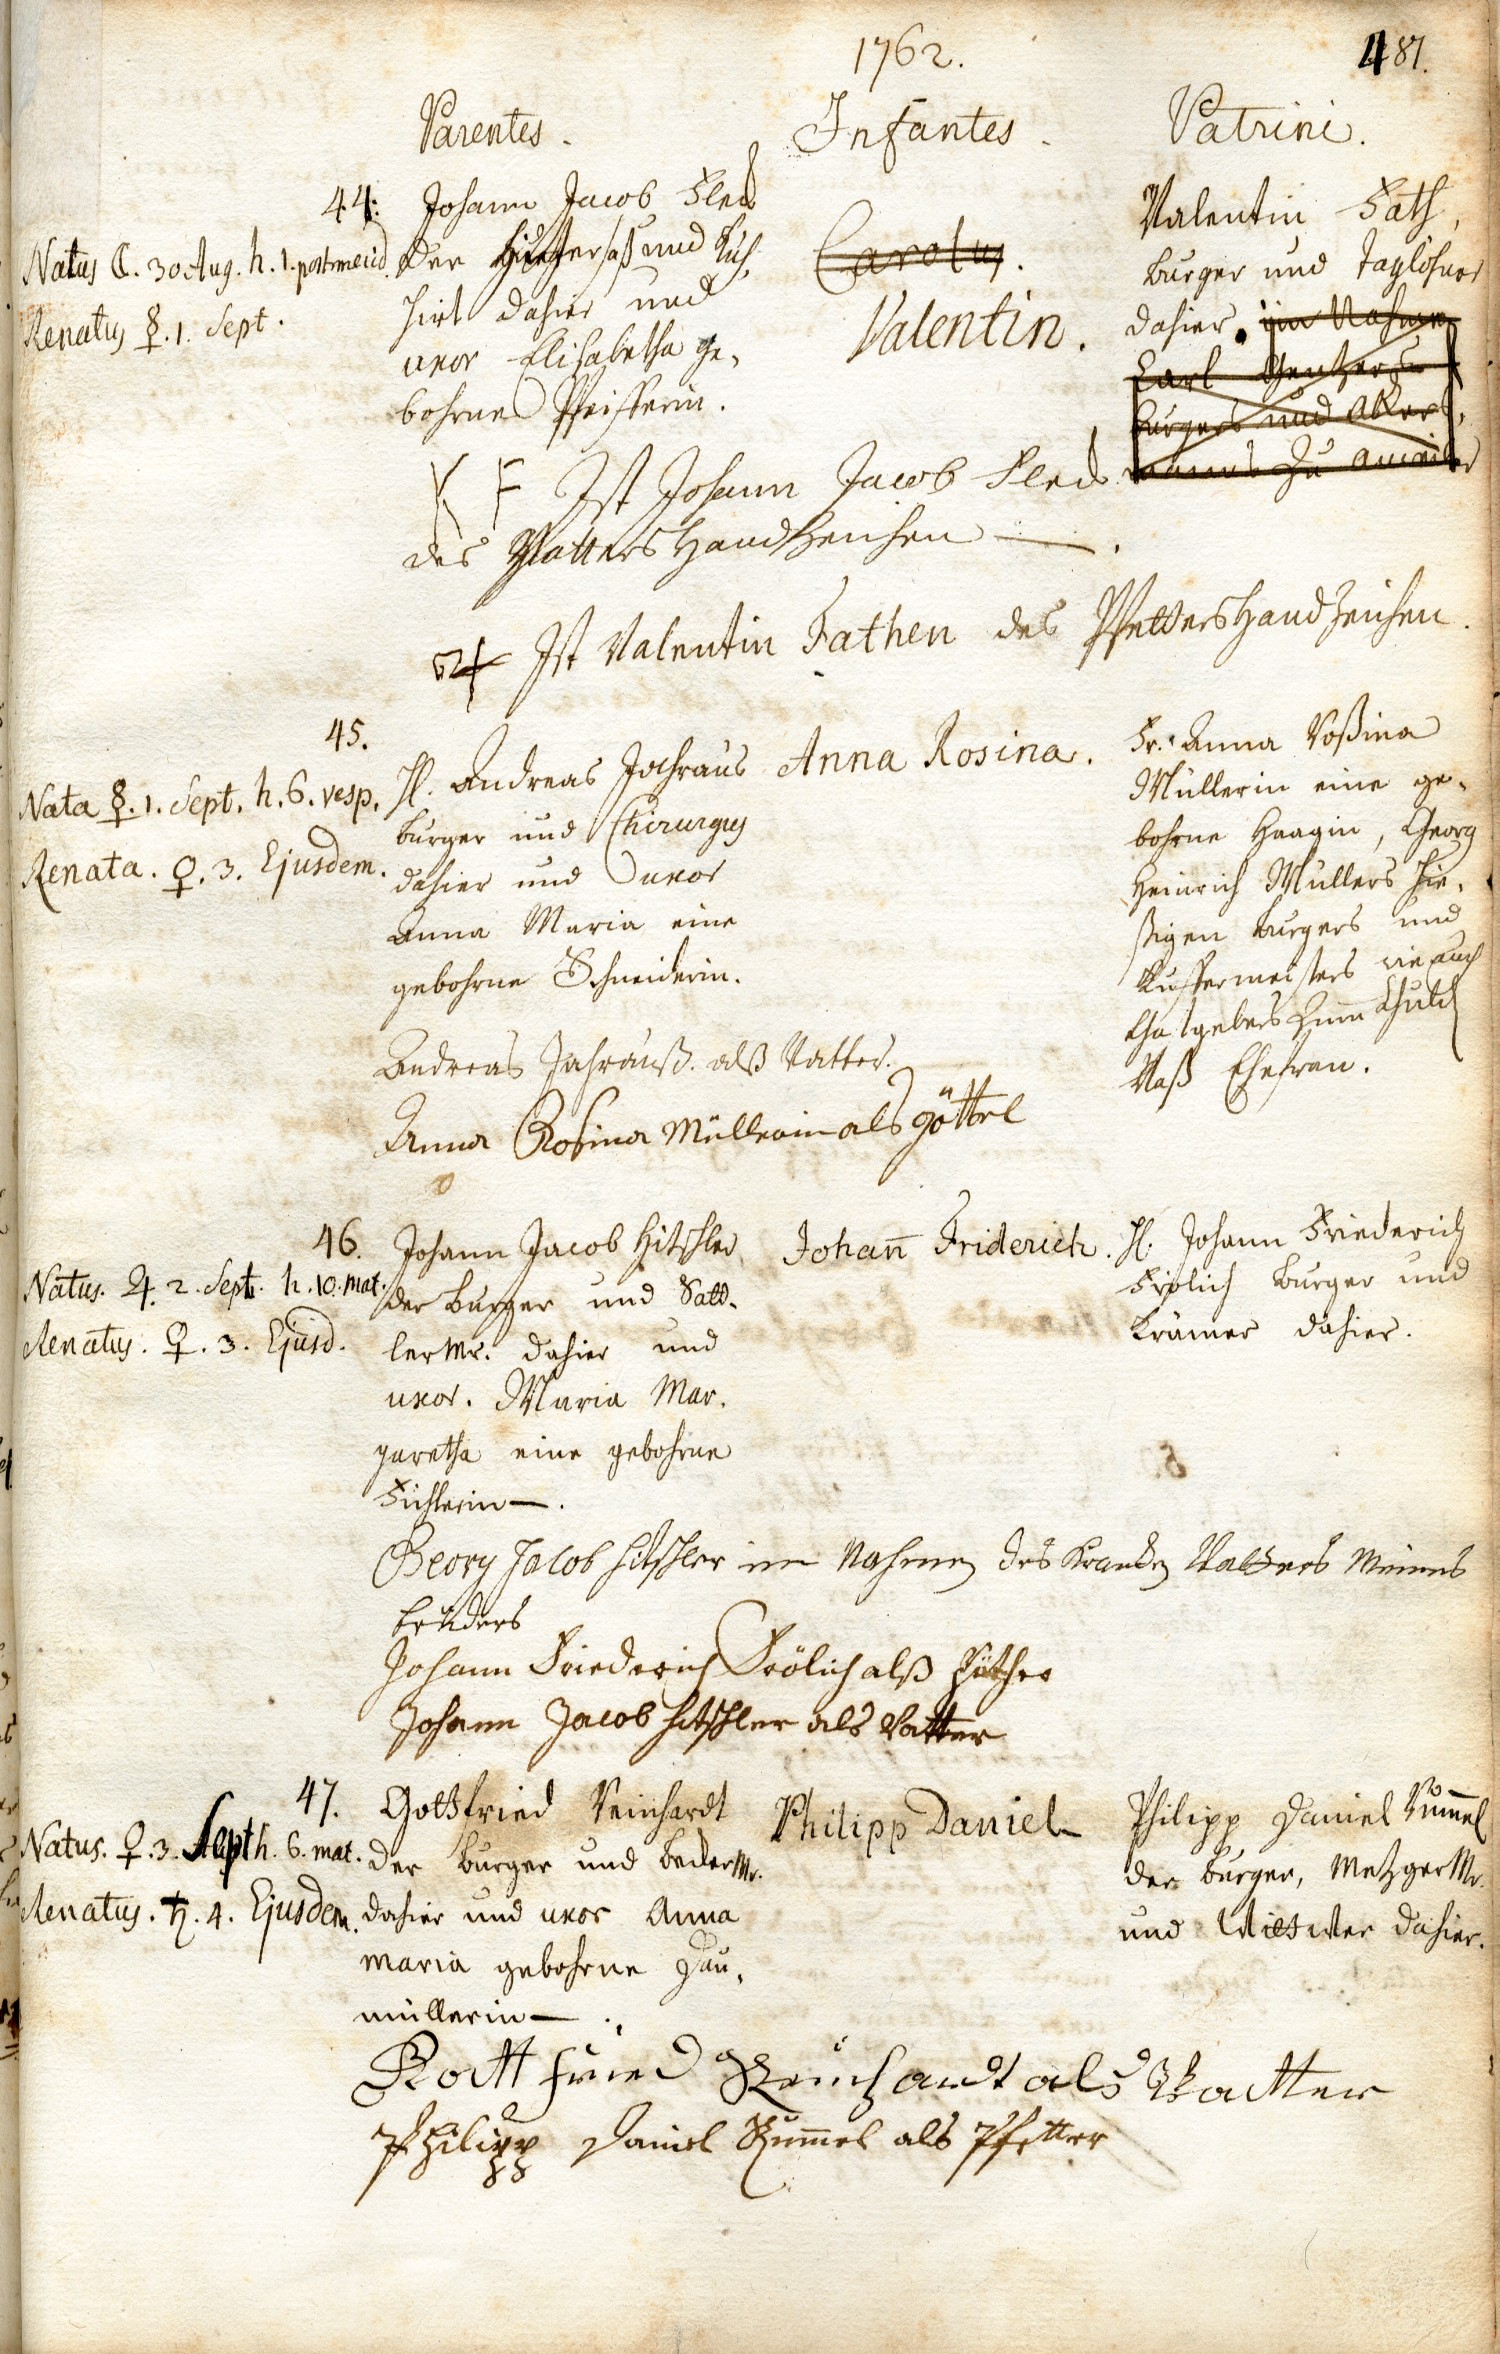 1762.
487.
Parentes.
Infantes.
Patrini.
44.
Natus ☾. 30 Aug. h. 1. postmerid.
Renatus ☿. 1. Sept.
Johann Jacob Fled
der Hintersaß und Küh,
hirt dahier und
uxor Elisabetha ge,
bohrne Pfeifferin.
Carolus.
Valentin.
Valentin Fath,
Burger und Taglöhner
dahier. im Nahmen
Carl
Burgers und Akers,
manns zu
K F Ist Johann Jacob Fled
des Vatters Handzeichen —.
Ist Valentin Fathen des Pfetters Handzeichen.
45.
Nata ☿. 1. Sept. h. 6. vesp.
Renata. ♀. 3. Ejusdem.
H. Andreas Jahraus
burger und Chirurgus
dahier und uxor
Anna Maria eine
gebohrne Schneiderin.
Anna Rosina.
Fr. Anna Roßina
Müllerin eine ge,
bohrne Haagin, Georg
Heinrich Müllers hie,
ßigen burgers und
Kuffermeisters wie auch
Vaß Ehefrau.
Andreas Jahrauß. alß Vatter.
Anna Rosina Müllerin als Göttel
46.
Natus. ♃. 2. Sept. h. 10. mat.
Renatus. ♀. 3. Ejusd.
Johann Jacob Hitschler
der burger und Satt,
ler Mr. dahier und
uxor. Maria Mar,
garetha eine gebohrne
Johan̄ Friderich.
H. Johann Friederich
Frölich burger und
Krämer dahier.
Georg Jacob Hitschler im Nahmen des Kranken Vatters Meines
bruders
Johann Friederich Frölich alß Petter
Johann Jacob Hitschler als Vatter
47.
Natus. ♀. 3. Sept h. 6. mat.
Renatus. ♄. 4. Ejusdem.
Gottfried Reinhardt
der burger und beder Mr.
dahier und uxor Anna
Maria gebohrne Dau,
müllerin —.
Philipp Daniel
Philipp Daniel Rum̄el
der burger, Metzger Mr.
und Wittwer dahier.
Gottfried Reinhardt als Vatter
Philipp Daniel Rum̄el als Pfetter